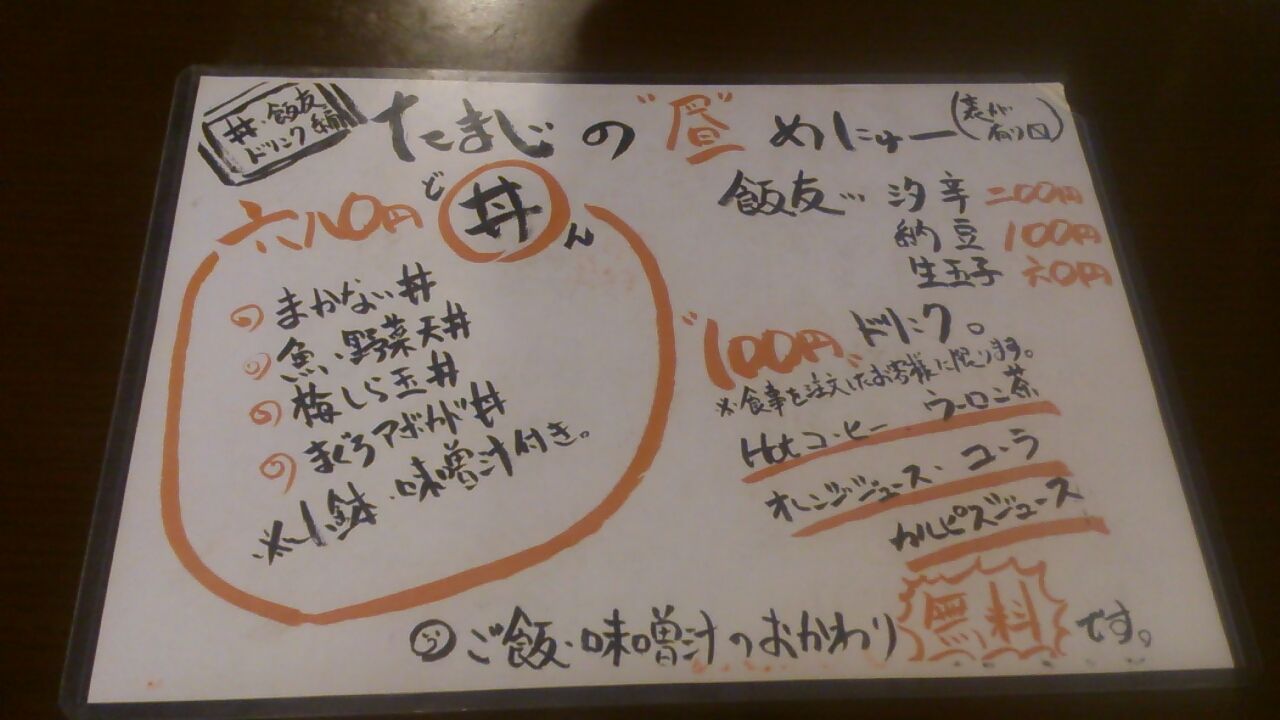 丼・飯友
ドリンク編
たまじの"昼"めにゅー
(表が
有り〼)
六八〇円
どん
丼
の まかない丼
の 魚・野菜天丼
の 梅しら玉丼
の まぐろアボカド丼
※小鉢・味噌汁付き。
飯友… 汐辛 二〇〇円
納豆 100円
生玉子 六〇円
"100円"ドリンク。
※食事を注文したお客様に限ります。
Hotコーヒー ウーロン茶
オレンジジュース・コーラ
カルピスジュース
ご飯・味噌汁のおかわり無料です。